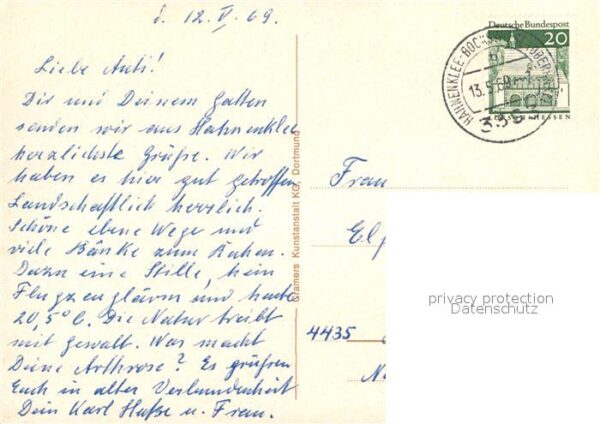 d. 12. V. 69.
Liebe Anti!
Dir und Deinem Gatten
senden wir aus Hahnenklee
herzlichste Grüße. Wir
haben es hier gut getroffen
Landschaftlich herrlich.
Schöne ebene Wege und
viele Bänke zum Ruhen.
Dazu eine Stille, kein
Flugzeuglärm und heute
20,5°C. Die Natur treibt
mit Gewalt. Was macht
Deine Arthrose? Es grüßen
Euch in alter Verbundenheit
Dein Karl u. Frau.
Cramers Kunstanstalt KG, Dortmund
Deutsche Bundespost
20
HAHNENKLEE-BOCKS
b
13.5.69
3
LORSCH/HESSEN
Frau
El
4435
privacy protection
Datenschutz